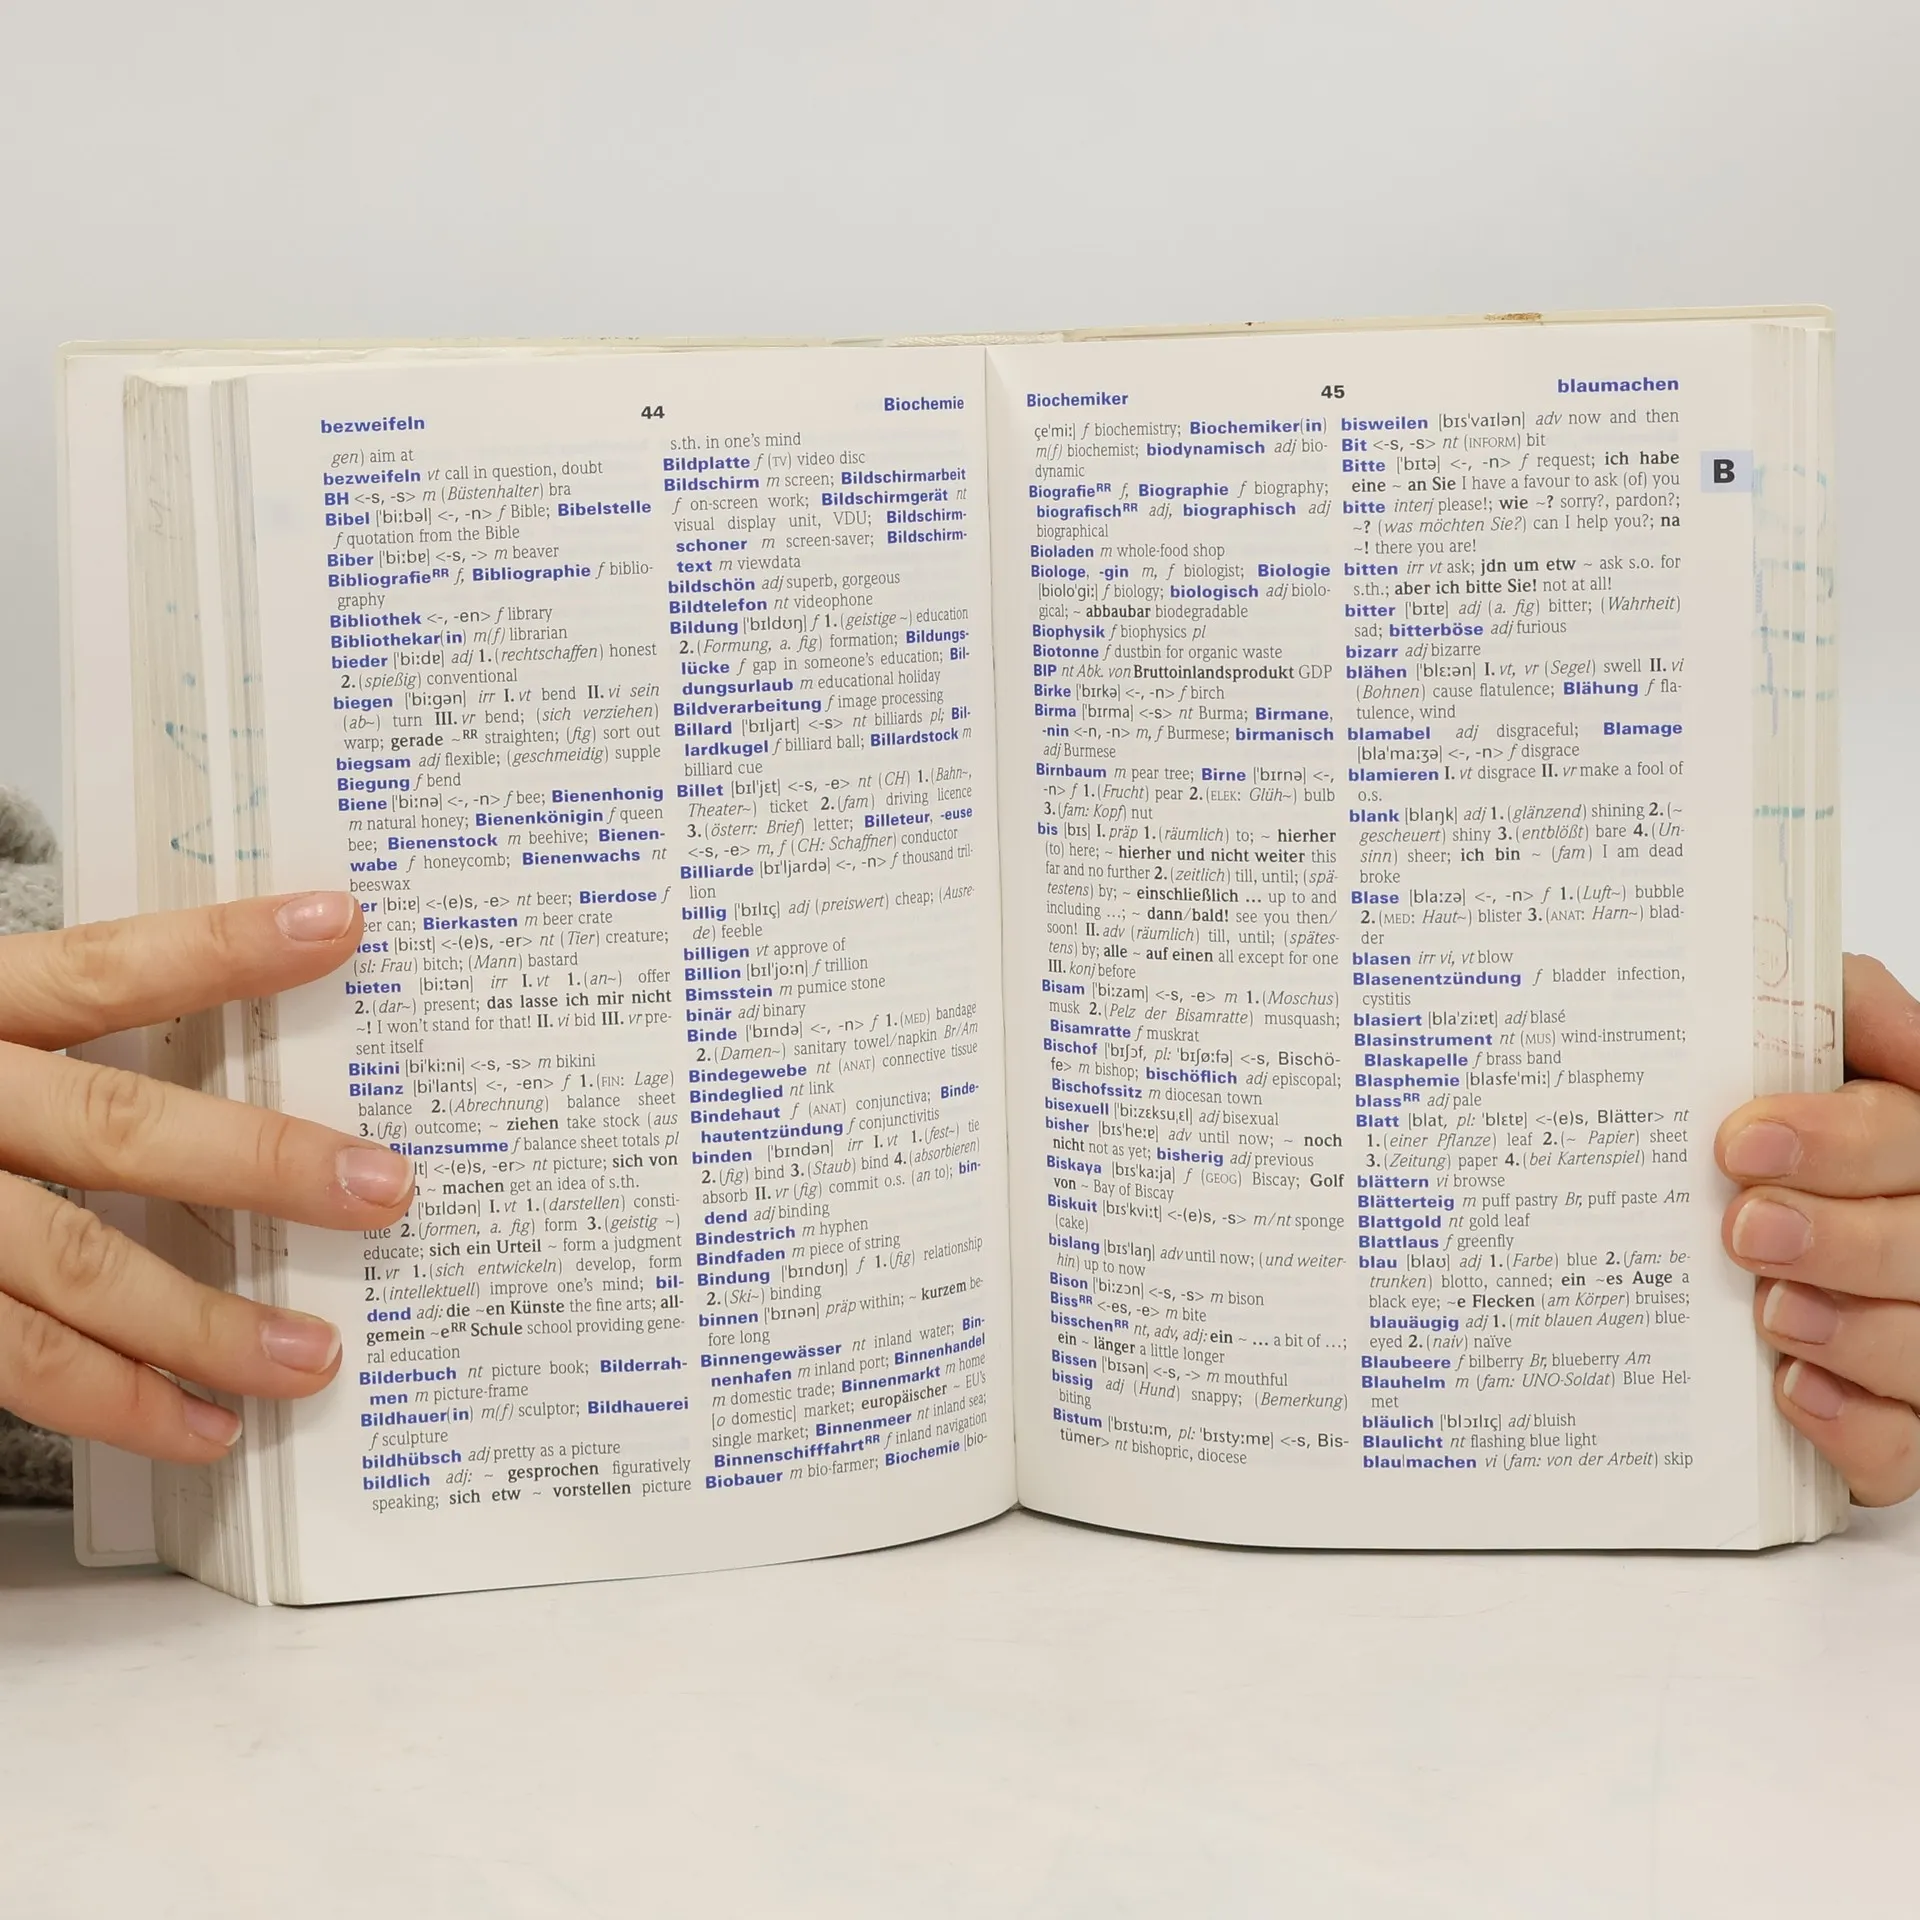 bezweifeln
44
Biochemie
gen) aim at
bezweifeln vt call in question, doubt
BH <-s, -s> m (Büstenhalter) bra
Bibel ['biːbəl] <-, -n> f Bible; Bibelstelle
f quotation from the Bible
Biber ['biːbɐ] <-s, -> m beaver
Bibliografieᴿᴿ f, Bibliographie f biblio-
graphy
Bibliothek <-, -en> f library
Bibliothekar(in) m(f) librarian
bieder ['biːdɐ] adj 1. (rechtschaffen) honest
2. (spießig) conventional
biegen ['biːgən] irr I. vt bend II. vi sein
(ab~) turn III. vr bend; (sich verziehen)
warp; gerade ~ᴿᴿ straighten; (fig) sort out
biegsam adj flexible; (geschmeidig) supple
Biegung f bend
Biene ['biːnə] <-, -n> f bee; Bienenhonig
m natural honey; Bienenkönigin f queen
bee; Bienenstock m beehive; Bienen-
wabe f honeycomb; Bienenwachs nt
beeswax
er [biːɐ] <-(e)s, -e> nt beer; Bierdose f
eer can; Bierkasten m beer crate
iest [biːst] <-(e)s, -er> nt (Tier) creature;
(sl: Frau) bitch; (Mann) bastard
bieten [biːtən] irr I. vt 1. (an~) offer
2. (dar~) present; das lasse ich mir nicht
~! I won't stand for that! II. vi bid III. vr pre-
sent itself
Bikini [bi'kiːni] <-s, -s> m bikini
Bilanz [bi'lants] <-, -en> f 1. (FIN: Lage)
balance 2. (Abrechnung) balance sheet
3. (fig) outcome; ~ ziehen take stock (aus
Bilanzsumme f balance sheet totals pl
lt] <-(e)s, -er> nt picture; sich von
~ machen get an idea of s.th.
['bɪldən] I. vt 1. (darstellen) consti-
tute 2. (formen, a. fig) form 3. (geistig ~)
educate; sich ein Urteil ~ form a judgment
II. vr 1. (sich entwickeln) develop, form
2. (intellektuell) improve one's mind; bil-
dend adj: die ~en Künste the fine arts; all-
gemein ~eᴿᴿ Schule school providing gene-
ral education
Bilderbuch nt picture book; Bilderrah-
men m picture-frame
Bildhauer(in) m(f) sculptor; Bildhauerei
f sculpture
bildhübsch adj pretty as a picture
bildlich adj: ~ gesprochen figuratively
speaking; sich etw ~ vorstellen picture
s.th. in one's mind
Bildplatte f (TV) video disc
Bildschirm m screen; Bildschirmarbeit
f on-screen work; Bildschirmgerät nt
visual display unit, VDU; Bildschirm-
schoner m screen-saver; Bildschirm-
text m viewdata
bildschön adj superb, gorgeous
Bildtelefon nt videophone
Bildung ['bɪldʊŋ] f 1. (geistige ~) education
2. (Formung, a. fig) formation; Bildungs-
lücke f gap in someone's education; Bil-
dungsurlaub m educational holiday
Bildverarbeitung f image processing
Billard ['bɪljart] <-s> nt billiards pl; Bil-
lardkugel f billiard ball; Billardstock m
billiard cue
Billet [bɪl'jɛt] <-s, -e> nt (CH) 1. (Bahn~,
Theater~) ticket 2. (fam) driving licence
3. (österr: Brief) letter; Billeteur, -euse
<-s, -e> m, f (CH: Schaffner) conductor
Billiarde [bɪ'ljardə] <-, -n> f thousand tril-
lion
billig ['bɪlɪç] adj (preiswert) cheap; (Ausre-
de) feeble
billigen vt approve of
Billion [bɪl'joːn] f trillion
Bimsstein m pumice stone
binär adj binary
Binde ['bɪndə] <-, -n> f 1. (MED) bandage
2. (Damen~) sanitary towel/napkin Br/Am
Bindegewebe nt (ANAT) connective tissue
Bindeglied nt link
Bindehaut f (ANAT) conjunctiva; Binde-
hautentzündung f conjunctivitis
binden ['bɪndən] irr I. vt 1. (fest~) tie
2. (fig) bind 3. (Staub) bind 4. (absorbieren)
absorb II. vr (fig) commit o.s. (an to); bin-
dend adj binding
Bindestrich m hyphen
Bindfaden m piece of string
Bindung ['bɪndʊŋ] f 1. (fig) relationship
2. (Ski~) binding
binnen ['bɪnən] präp within; ~ kurzem be-
fore long
Binnengewässer nt inland water; Bin-
nenhafen m inland port; Binnenhandel
m domestic trade; Binnenmarkt m home
[o domestic] market; europäischer ~ EU's
single market; Binnenmeer nt inland sea;
Binnenschifffahrtᴿᴿ f inland navigation
Biobauer m bio-farmer; Biochemie [bio-
Biochemiker
45
blaumachen
çe'miː] f biochemistry; Biochemiker(in)
m(f) biochemist; biodynamisch adj bio-
dynamic
Biografieᴿᴿ f, Biographie f biography;
biografischᴿᴿ adj, biographisch adj
biographical
Bioladen m whole-food shop
Biologe, -gin m, f biologist; Biologie
[biolo'giː] f biology; biologisch adj biolo-
gical; ~ abbaubar biodegradable
Biophysik f biophysics pl
Biotonne f dustbin for organic waste
BIP nt Abk. von Bruttoinlandsprodukt GDP
Birke ['bɪrkə] <-, -n> f birch
Birma ['bɪrma] <-s> nt Burma; Birmane,
-nin <-n, -n> m, f Burmese; birmanisch
adj Burmese
Birnbaum m pear tree; Birne ['bɪrnə] <-,
-n> f 1. (Frucht) pear 2. (ELEK: Glüh~) bulb
3. (fam: Kopf) nut
bis [bɪs] I. präp 1. (räumlich) to; ~ hierher
(to) here; ~ hierher und nicht weiter this
far and no further 2. (zeitlich) till, until; (spä-
testens) by; ~ einschließlich ... up to and
including ...; ~ dann/bald! see you then/
soon! II. adv (räumlich) till, until; (spätes-
tens) by; alle ~ auf einen all except for one
III. konj before
Bisam ['biːzam] <-s, -e> m 1. (Moschus)
musk 2. (Pelz der Bisamratte) musquash;
Bisamratte f muskrat
Bischof ['bɪʃɔf, pl: 'bɪʃøːfə] <-s, Bischö-
fe> m bishop; bischöflich adj episcopal;
Bischofssitz m diocesan town
bisexuell ['biːzɛksuˌɛl] adj bisexual
bisher [bɪs'heːɐ] adv until now; ~ noch
nicht not as yet; bisherig adj previous
Biskaya [bɪs'kaːja] f (GEOG) Biscay; Golf
von ~ Bay of Biscay
Biskuit [bɪs'kviːt] <-(e)s, -s> m/nt sponge
(cake)
bislang [bɪs'laŋ] adv until now; (und weiter-
hin) up to now
Bison ['biːzɔn] <-s, -s> m bison
Bissᴿᴿ <-es, -e> m bite
bisschenᴿᴿ nt, adv, adj: ein ~ ... a bit of ...;
ein ~ länger a little longer
Bissen ['bɪsən] <-s, -> m mouthful
bissig adj (Hund) snappy; (Bemerkung)
biting
Bistum ['bɪstuːm, pl: 'bɪstyːmɐ] <-s, Bis-
tümer> nt bishopric, diocese
bisweilen [bɪs'vaɪlən] adv now and then
Bit <-s, -s> nt (INFORM) bit
Bitte ['bɪtə] <-, -n> f request; ich habe
eine ~ an Sie I have a favour to ask (of) you
bitte interj please!; wie ~? sorry?, pardon?;
~? (was möchten Sie?) can I help you?; na
~! there you are!
bitten irr vt ask; jdn um etw ~ ask s.o. for
s.th.; aber ich bitte Sie! not at all!
bitter ['bɪtɐ] adj (a. fig) bitter; (Wahrheit)
sad; bitterböse adj furious
bizarr adj bizarre
blähen ['blɛːən] I. vt, vr (Segel) swell II. vi
(Bohnen) cause flatulence; Blähung f fla-
tulence, wind
blamabel adj disgraceful; Blamage
[bla'maːʒə] <-, -n> f disgrace
blamieren I. vt disgrace II. vr make a fool of
o.s.
blank [blaŋk] adj 1. (glänzend) shining 2. (~
gescheuert) shiny 3. (entblößt) bare 4. (Un-
sinn) sheer; ich bin ~ (fam) I am dead
broke
Blase [blaːzə] <-, -n> f 1. (Luft~) bubble
2. (MED: Haut~) blister 3. (ANAT: Harn~) blad-
der
blasen irr vi, vt blow
Blasenentzündung f bladder infection,
cystitis
blasiert [bla'ziːɐt] adj blasé
Blasinstrument nt (MUS) wind-instrument;
Blaskapelle f brass band
Blasphemie [blasfe'miː] f blasphemy
blassᴿᴿ adj pale
Blatt [blat, pl: 'blɛtɐ] <-(e)s, Blätter> nt
1. (einer Pflanze) leaf 2. (~ Papier) sheet
3. (Zeitung) paper 4. (bei Kartenspiel) hand
blättern vi browse
Blätterteig m puff pastry Br, puff paste Am
Blattgold nt gold leaf
Blattlaus f greenfly
blau [blaʊ] adj 1. (Farbe) blue 2. (fam: be-
trunken) blotto, canned; ein ~es Auge a
black eye; ~e Flecken (am Körper) bruises;
blauäugig adj 1. (mit blauen Augen) blue-
eyed 2. (naiv) naïve
Blaubeere f bilberry Br, blueberry Am
Blauhelm m (fam: UNO-Soldat) Blue Hel-
met
bläulich ['blɔɪlɪç] adj bluish
Blaulicht nt flashing blue light
blau|machen vi (fam: von der Arbeit) skip
B